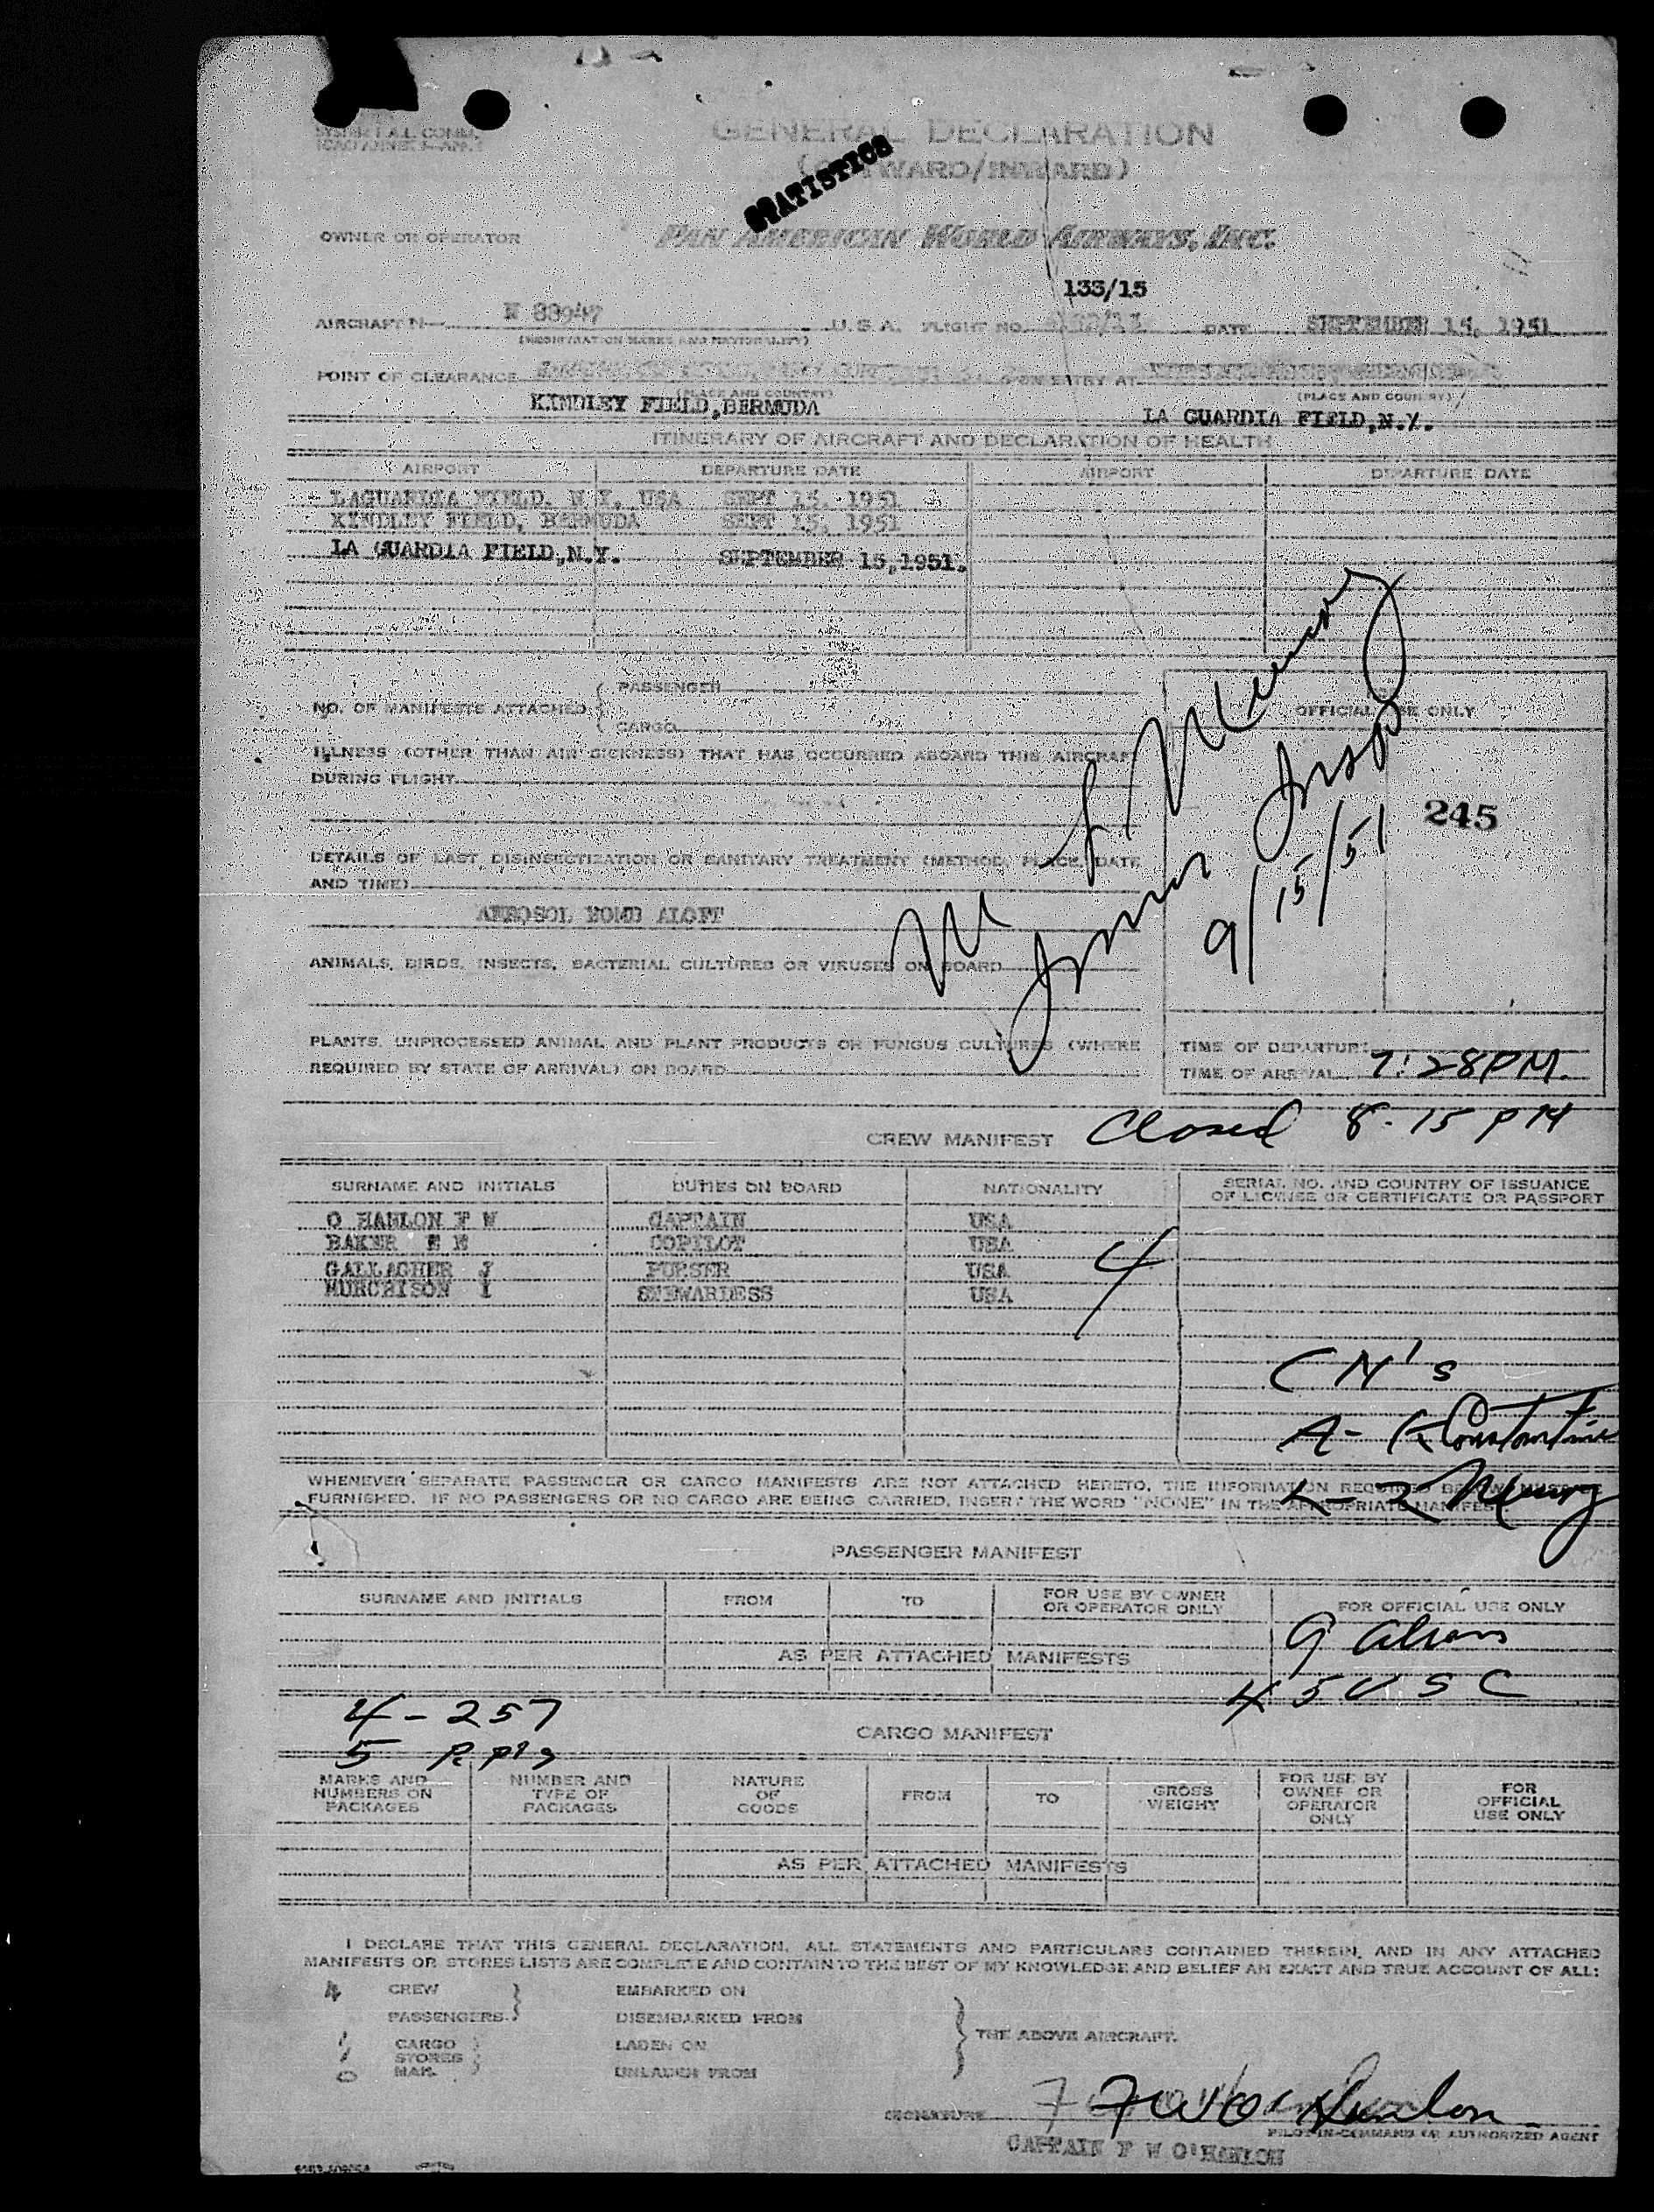 SYSTEM F.A.L. COMM.
GENERAL DECLARATION
(OUTWARD/INWARD)
STATISTICS
OWNER OR OPERATOR PAN AMERICAN WORLD AIRWAYS, INC.
133/15
AIRCRAFT N— N 88947 U.S.A. FLIGHT NO. DATE SEPTEMBER 15, 1951
(REGISTRATION MARKS AND NATIONALITY)
POINT OF CLEARANCE FOR ENTRY AT
(PLACE AND COUNTRY) (PLACE AND COUNTRY)
KINDLEY FIELD, BERMUDA LA GUARDIA FIELD, N.Y.
ITINERARY OF AIRCRAFT AND DECLARATION OF HEALTH
AIRPORT DEPARTURE DATE AIRPORT DEPARTURE DATE
LAGUARDIA FIELD, N Y, USA SEPT 15, 1951
KINDLEY FIELD, BERMUDA SEPT 15, 1951
LA GUARDIA FIELD, N.Y. SEPTEMBER 15, 1951.
NO. OF MANIFESTS ATTACHED PASSENGER
CARGO
OFFICIAL USE ONLY
ILLNESS (OTHER THAN AIR SICKNESS) THAT HAS OCCURRED ABOARD THIS AIRCRAFT
DURING FLIGHT
245
9/15/51
DETAILS OF LAST DISINSECTIZATION OR SANITARY TREATMENT (METHOD, PLACE, DATE
AND TIME)
AEROSOL BOMB ALOFT
ANIMALS, BIRDS, INSECTS, BACTERIAL CULTURES OR VIRUSES ON BOARD
PLANTS, UNPROCESSED ANIMAL AND PLANT PRODUCTS OR FUNGUS CULTURES (WHERE
REQUIRED BY STATE OF ARRIVAL) ON BOARD
TIME OF DEPARTURE
TIME OF ARRIVAL 7:28 PM.
CREW MANIFEST Closed 8-15 PM
SURNAME AND INITIALS DUTIES ON BOARD NATIONALITY SERIAL NO. AND COUNTRY OF ISSUANCE
OF LICENSE OR CERTIFICATE OR PASSPORT
O HANLON F W CAPTAIN USA
BAKER E E COPILOT USA
GALLAGHER J PURSER USA
MURCHISON I STEWARDESS USA
4
CM's
A- Constantine
WHENEVER SEPARATE PASSENGER OR CARGO MANIFESTS ARE NOT ATTACHED HERETO, THE INFORMATION REQUIRED BELOW MUST BE
FURNISHED. IF NO PASSENGERS OR NO CARGO ARE BEING CARRIED, INSERT THE WORD "NONE" IN THE APPROPRIATE MANIFEST.
PASSENGER MANIFEST
SURNAME AND INITIALS FROM TO FOR USE BY OWNER
OR OPERATOR ONLY FOR OFFICIAL USE ONLY
9 Aliens
AS PER ATTACHED MANIFESTS
45 USC
4-257
CARGO MANIFEST
MARKS AND
NUMBERS ON
PACKAGES NUMBER AND
TYPE OF
PACKAGES NATURE
OF
GOODS FROM TO GROSS
WEIGHT FOR USE BY
OWNER OR
OPERATOR
ONLY FOR
OFFICIAL
USE ONLY
AS PER ATTACHED MANIFESTS
I DECLARE THAT THIS GENERAL DECLARATION, ALL STATEMENTS AND PARTICULARS CONTAINED THEREIN, AND IN ANY ATTACHED
MANIFESTS OR STORES LISTS ARE COMPLETE AND CONTAIN TO THE BEST OF MY KNOWLEDGE AND BELIEF AN EXACT AND TRUE ACCOUNT OF ALL:
4 CREW EMBARKED ON
PASSENGERS DISEMBARKED FROM
THE ABOVE AIRCRAFT.
CARGO LADEN ON
STORES
0 MAIL UNLADEN FROM
SIGNATURE F W O'Hanlon
PILOT-IN-COMMAND OR AUTHORIZED AGENT
CAPTAIN F W O'HANLON